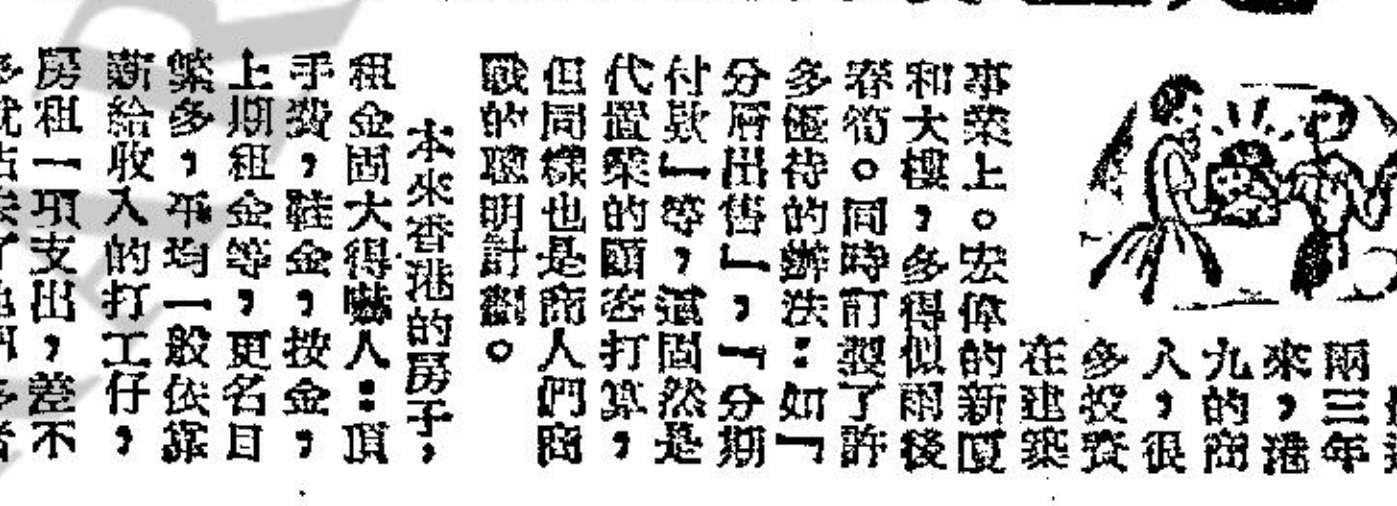 兩三年
來，港
九的商
人，很
多投資
在建築
事業上。宏偉的新廈
和大樓，多得似雨後
春筍。同時訂製了許
多優待的辦法：如「
分層出售」，「分期
付款」等，這固然是
代置業的顧客打算，
但同樣也是商人們商
戰的聰明計劃。
本來香港的房子，
租金固大得嚇人：頂
手費，鞋金，按金，
上期租金等，更名目
繁多，平均一般依靠
薪給收入的打工仔，
房租一項支出，差不